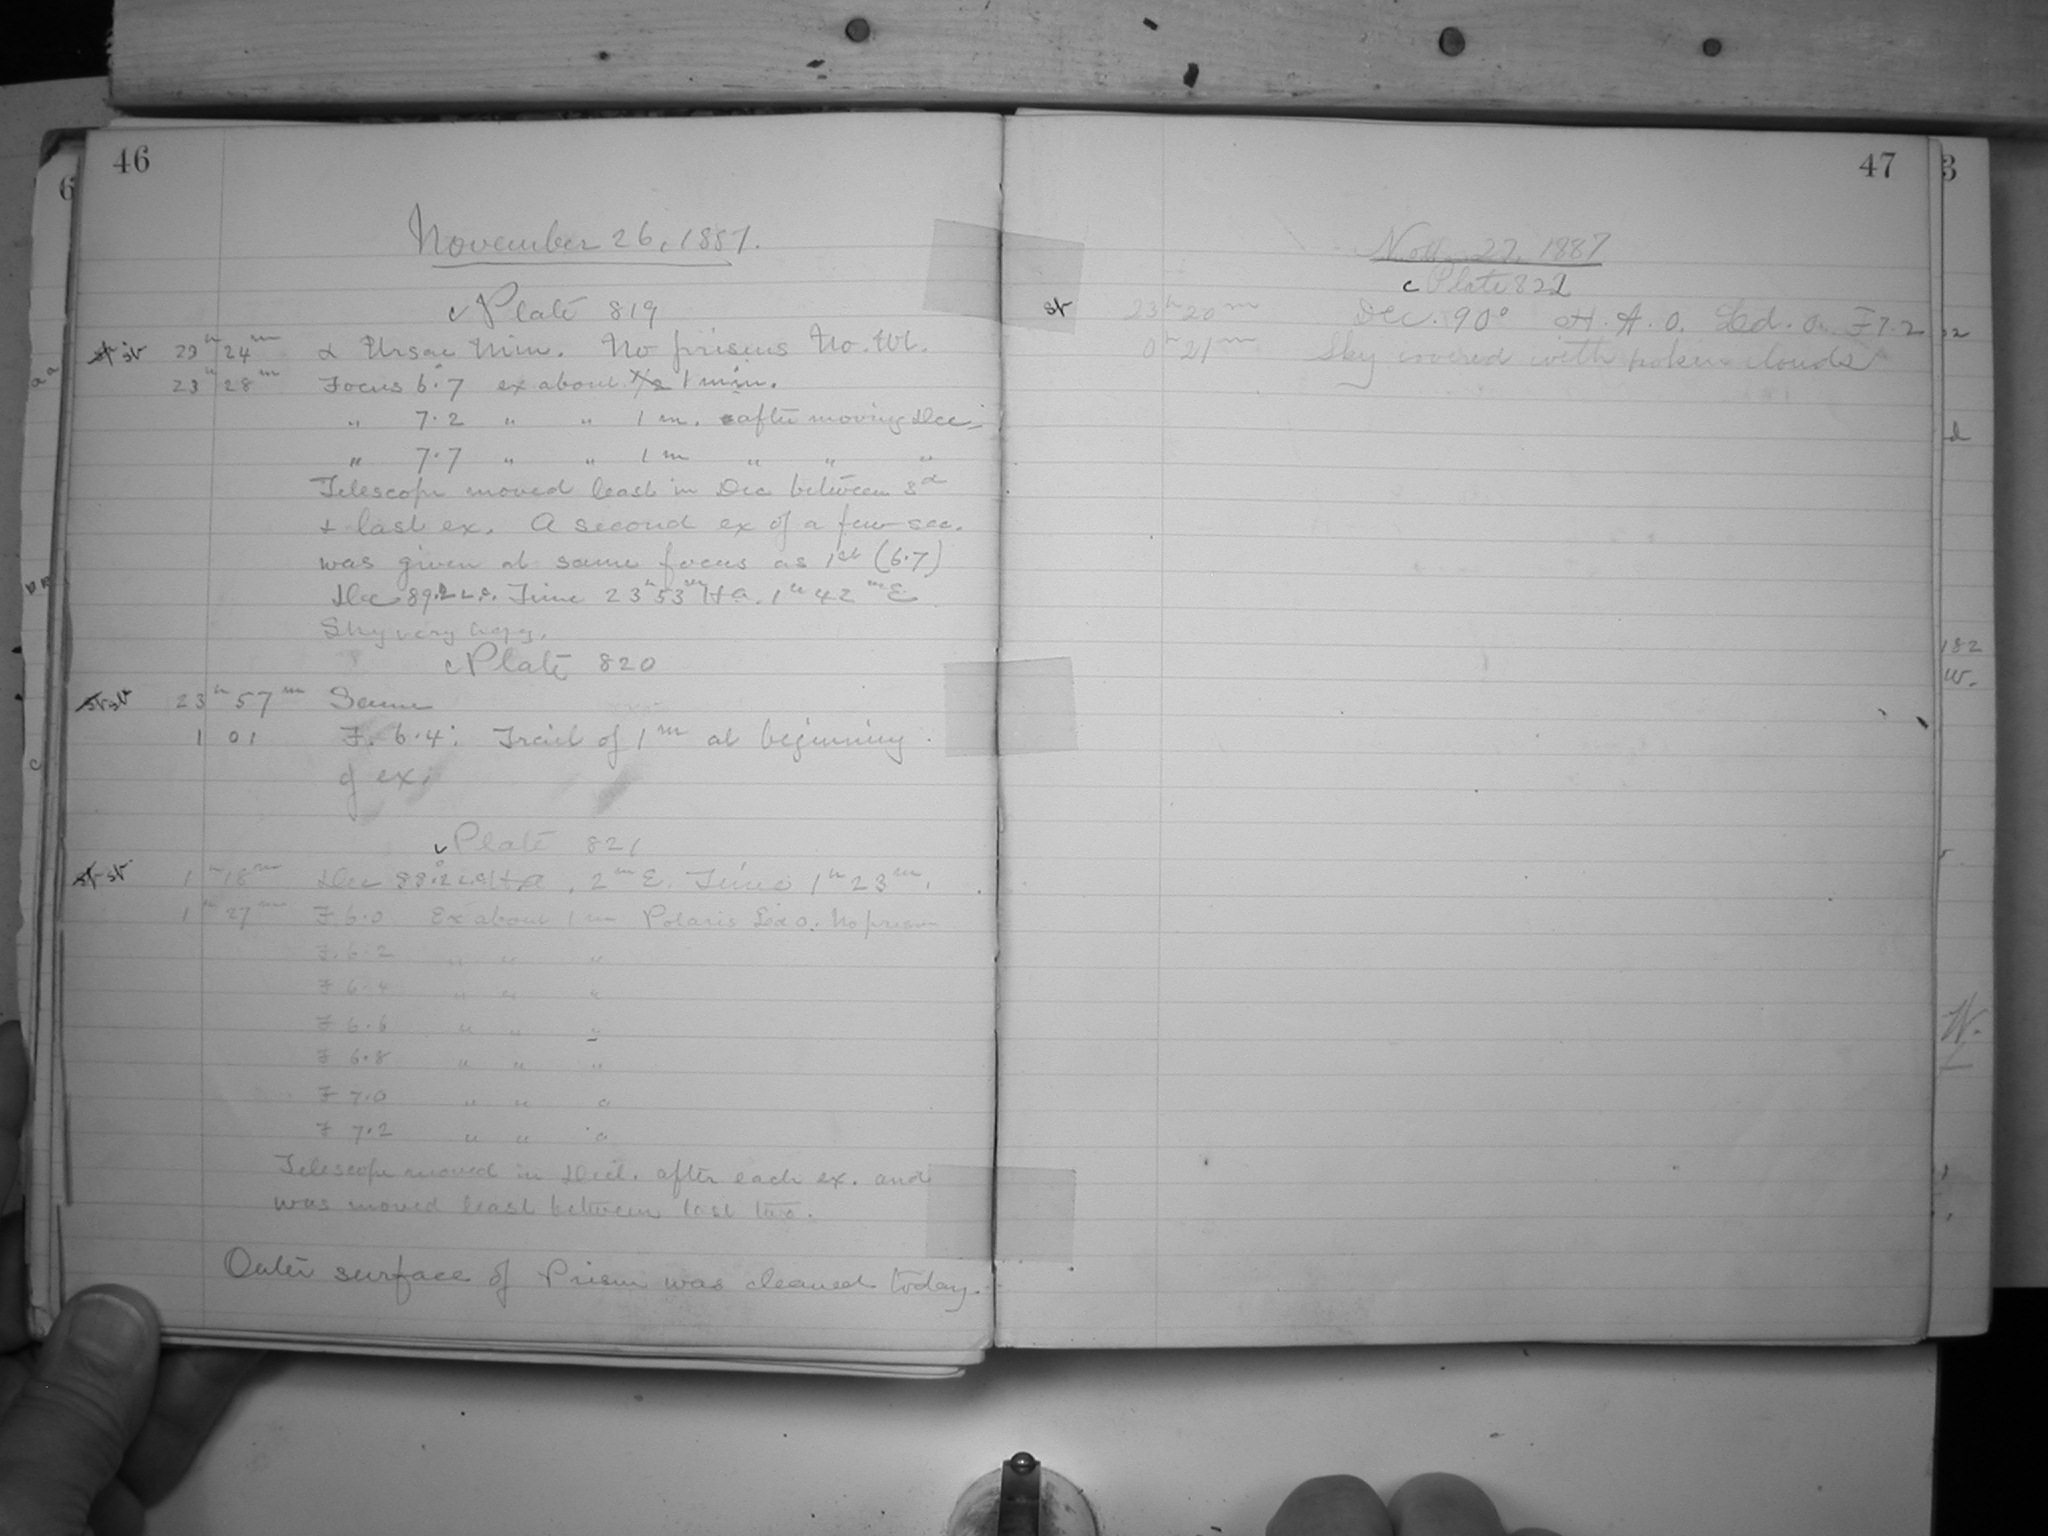 46
November 26, 1887.
c Plate 819
st st 23h 24m α Ursae Min. No prisms No. Wt.
23h 28m Focus 6.7 ex about 1/2 1 min.
" 7.2 " " 1 m. after moving Dec.
" 7.7 " " 1 m " " "
Telescope moved least in Dec between 3d
+ last ex. A second ex of a few sec.
was given at same focus as 1st (6.7)
Dec 89.2 L.C. Time 23h 53m H a. 1h 42m E
Sky very hazy.
c Plate 820
st st 23h 57m Same
1 01 F. 6.4. Trail of 1m at beginning
of ex.
c Plate 821
st st 1h 18m Dec 88.2 L.C. H a, 2m E. Time 1h 23m.
1h 27m F. 6.0 Ex about 1 m Polaris Ld 0. No prism
F. 6.2 " " "
F 6.4 " " "
F 6.6 " " "
F 6.8 " " "
F 7.0 " " "
F 7.2 " " "
Telescope moved in Decl. after each ex. and
was moved least between last two.
Outer surface of Prism was cleaned today.
47
Nov. 27, 1887
c Plate 822
st 23h 20m Dec. 90° H. A. 0. Ld. 0. F 7.2
0h 21m Sky covered with broken clouds